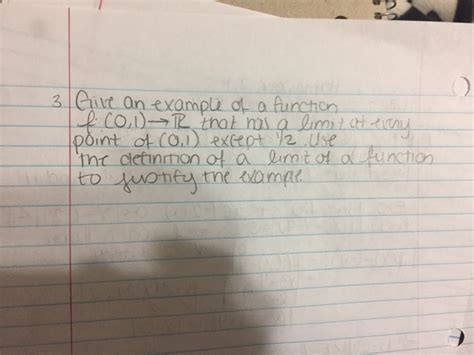 3. Give an example of a function
f: (0,1) → ℝ that has a limit at every
point of (0,1) except 1/2. Use
the definition of a limit of a function
to justify the example.